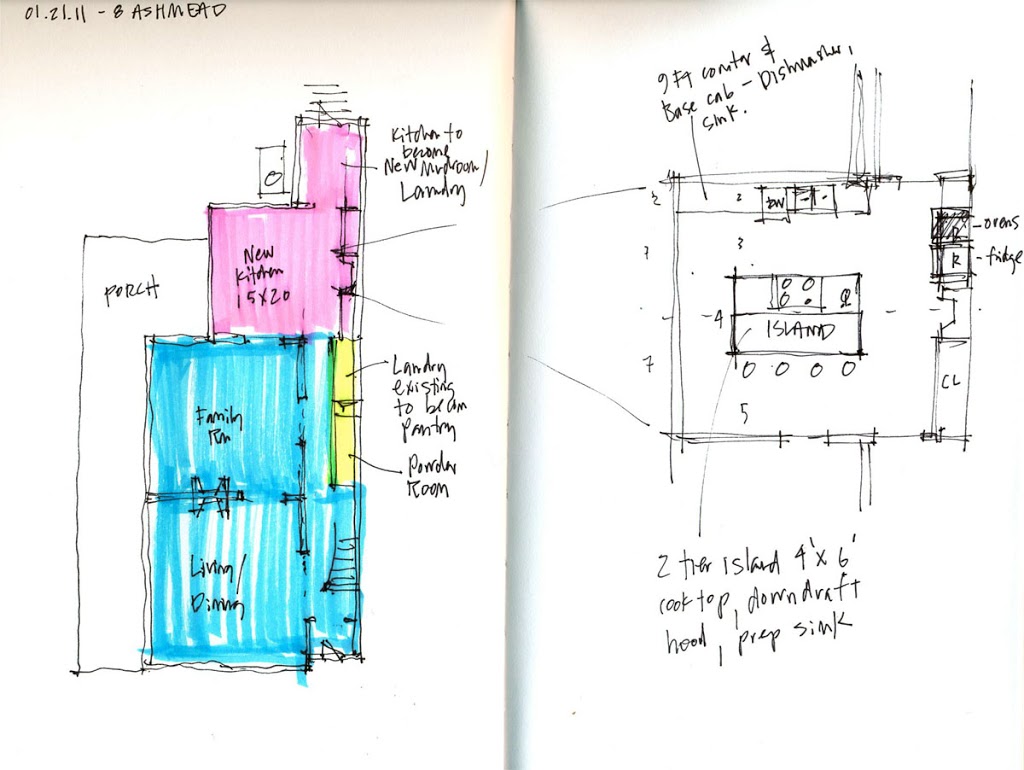 01.21.11 - 8 ASHMEAD
Kitchen to
become
New Mudroom/
Laundry
New
Kitchen
15X20
PORCH
Laundry
existing
to becom
pantry
Powder
Room
Family
Rm
Living/
Dining
9 Ft counter &
Base cab - Dishwasher,
sink.
2
2
DW
7
3
- ovens
R
- fridge
4
ISLAND
7
CL
5
2 tier island 4' x 6'
cooktop, downdraft
hood, prep sink